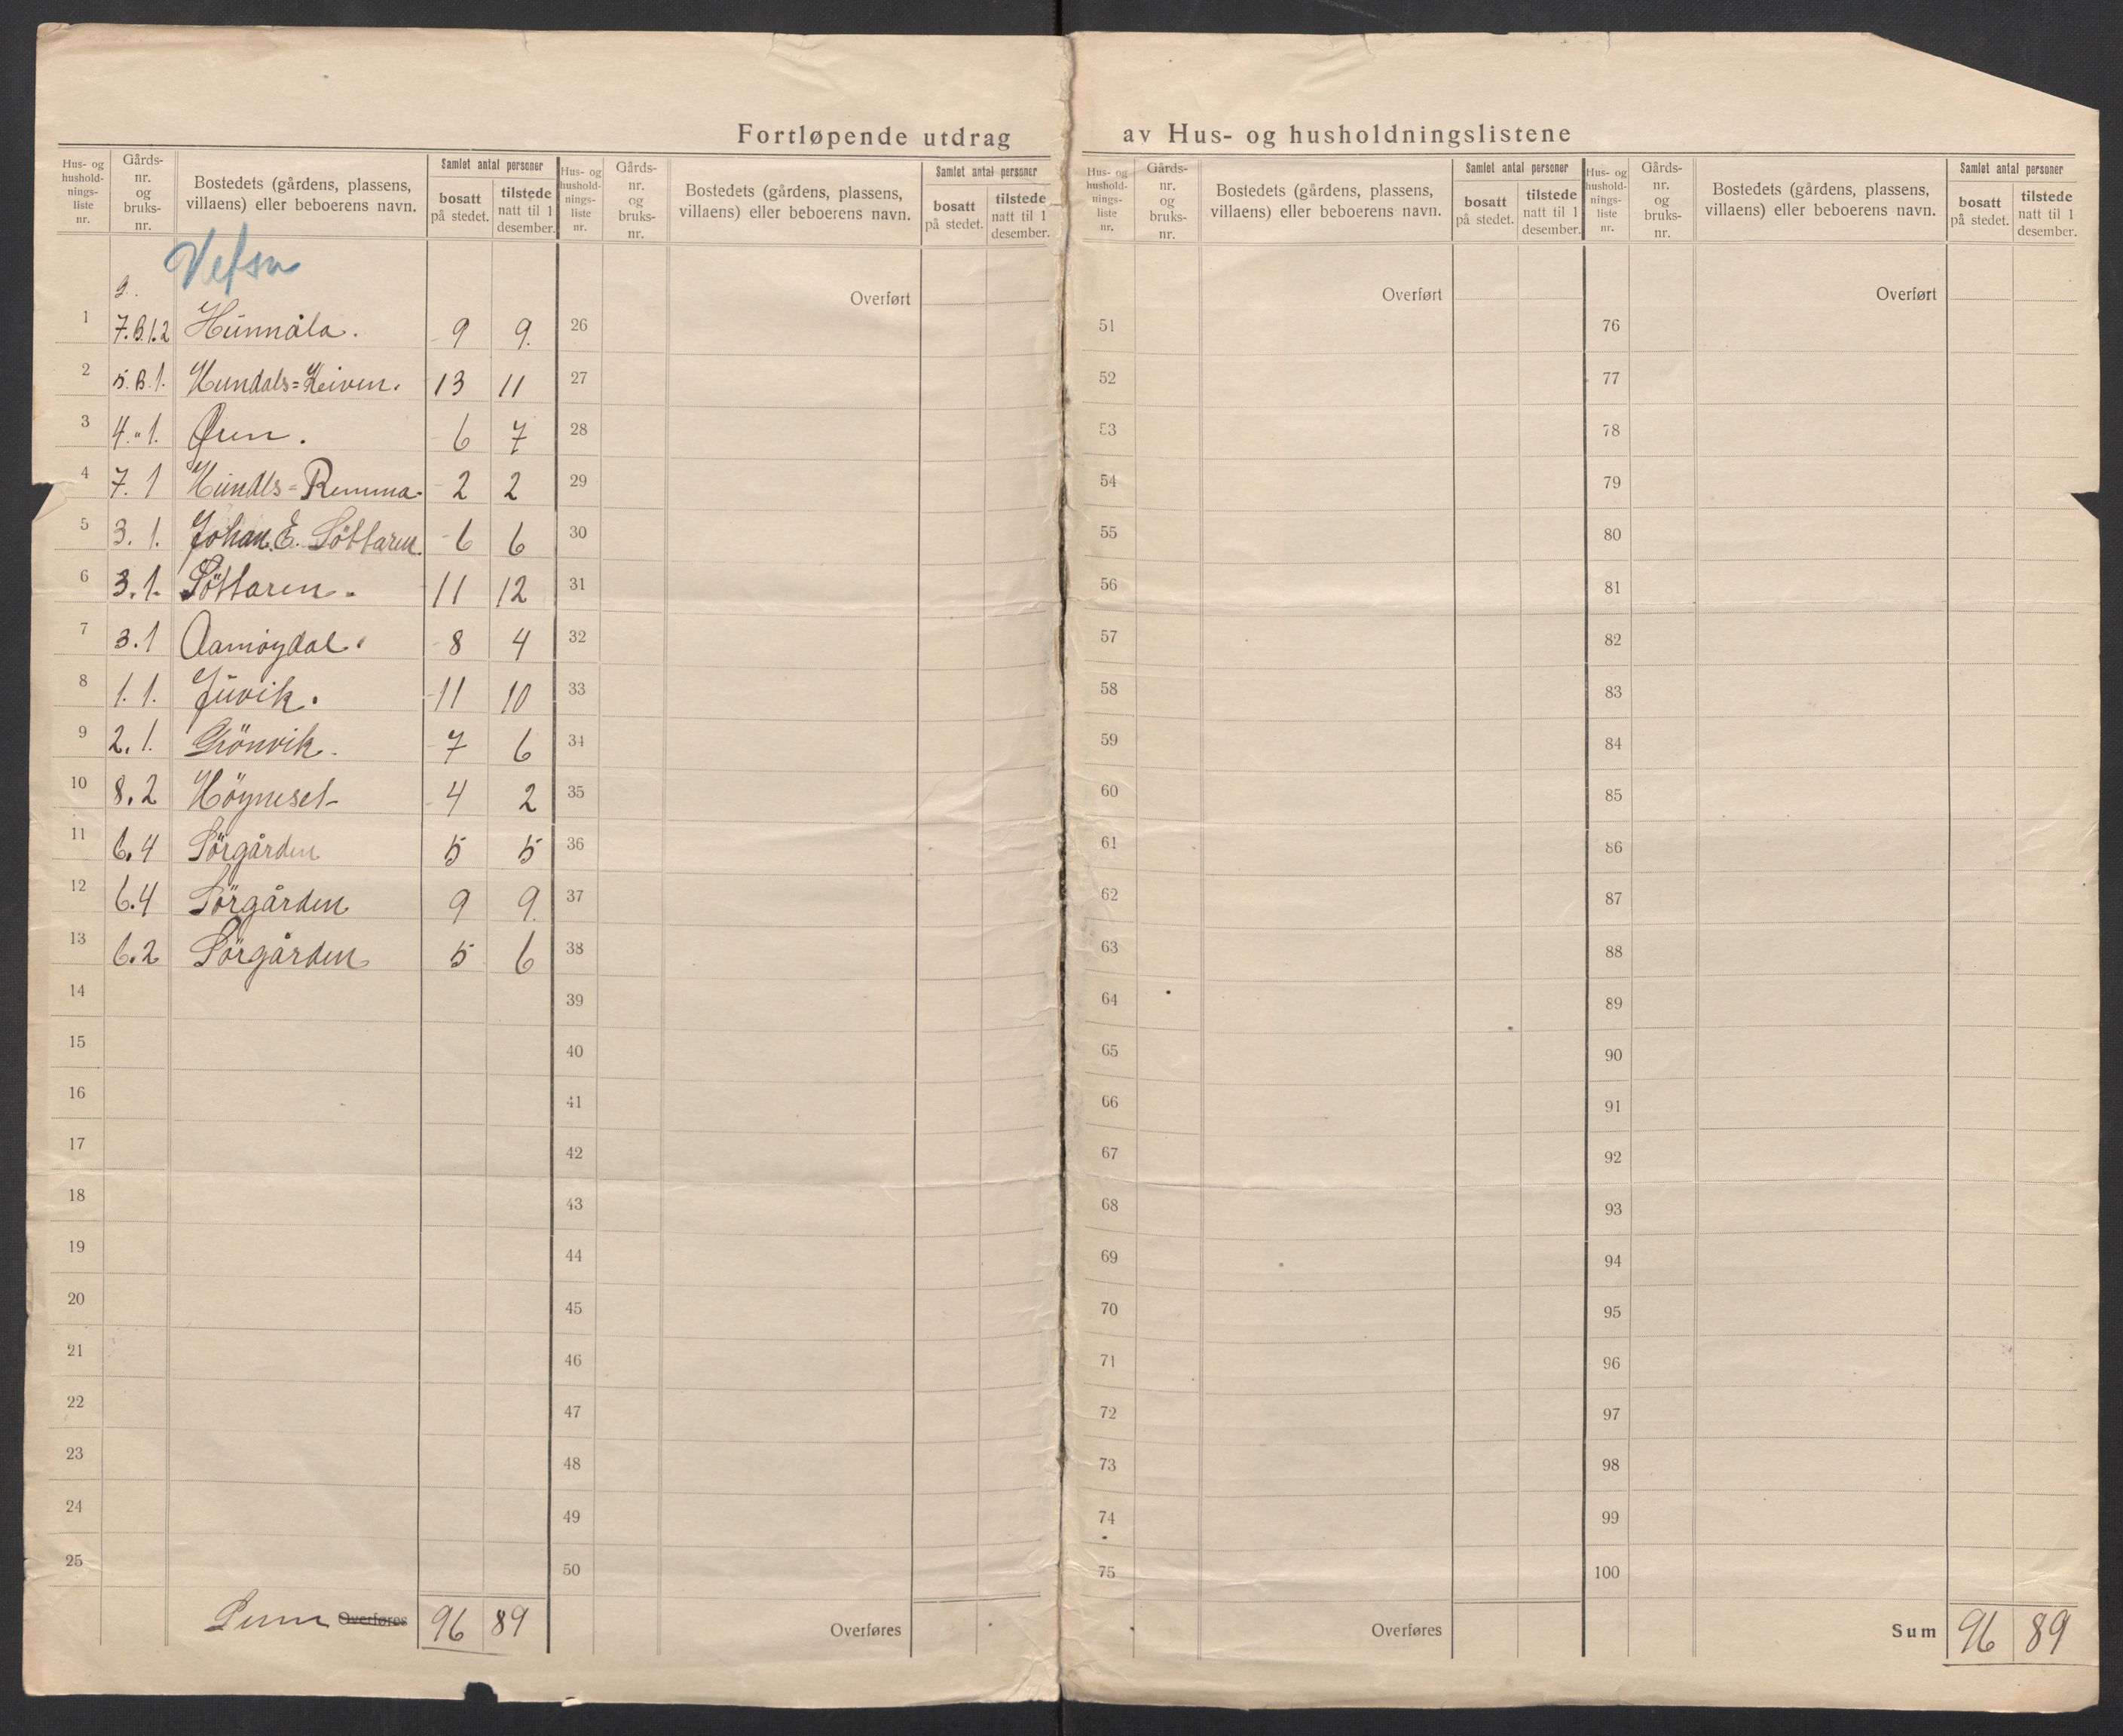 Fortløpende utdrag av Hus- og husholdningslistene
Hus- og hushold-nings-liste nr. | Gårds-nr. og bruks-nr. | Bostedets (gårdens, plassens, villaens) eller beboerens navn. | Samlet antal personer | bosatt på stedet. | tilstede natt til 1 desember.
Hus- og hushold-nings-liste nr. | Gårds-nr. og bruks-nr. | Bostedets (gårdens, plassens, villaens) eller beboerens navn. | Samlet antal personer | bosatt på stedet. | tilstede natt til 1 desember.
Hus- og hushold-nings-liste nr. | Gårds-nr. og bruks-nr. | Bostedets (gårdens, plassens, villaens) eller beboerens navn. | Samlet antal personer | bosatt på stedet. | tilstede natt til 1 desember.
Hus- og hushold-nings-liste nr. | Gårds-nr. og bruks-nr. | Bostedets (gårdens, plassens, villaens) eller beboerens navn. | Samlet antal personer | bosatt på stedet. | tilstede natt til 1 desember.
Vefsn
Overført Overført Overført
1 7.B.1.2 Hunnåla. 9 9. 26 51 76
2 5.B.1. Hundals=Kleiven. 13 11 27 52 77
3 4."1. Øren. 6 7 28 53 78
4 7.1 Hundls=Remma 2 2 29 54 79
5 3.1. Johan E. Söttaren. 6 6 30 55 80
6 3.1. Söttaren. 11 12 31 56 81
7 3.1 Aamøydal. 8 4 32 57 82
8 1.1. Juvik. 11 10 33 58 83
9 2.1. Grönvik. 7 6 34 59 84
10 8.2 Höyneset 4 2 35 60 85
11 6.4 Sörgården 5 5 36 61 86
12 6.4 Sörgården 9 9. 37 62 87
13 6.2 Sörgården 5 6 38 63 88
14 39 64 89
15 40 65 90
16 41 66 91
17 42 67 92
18 43 68 93
19 44 69 94
20 45 70 95
21 46 71 96
22 47 72 97
23 48 73 98
24 49 74 99
25 50 75 100
Sum Overføres 96 89 Overføres Overføres Sum 96 89